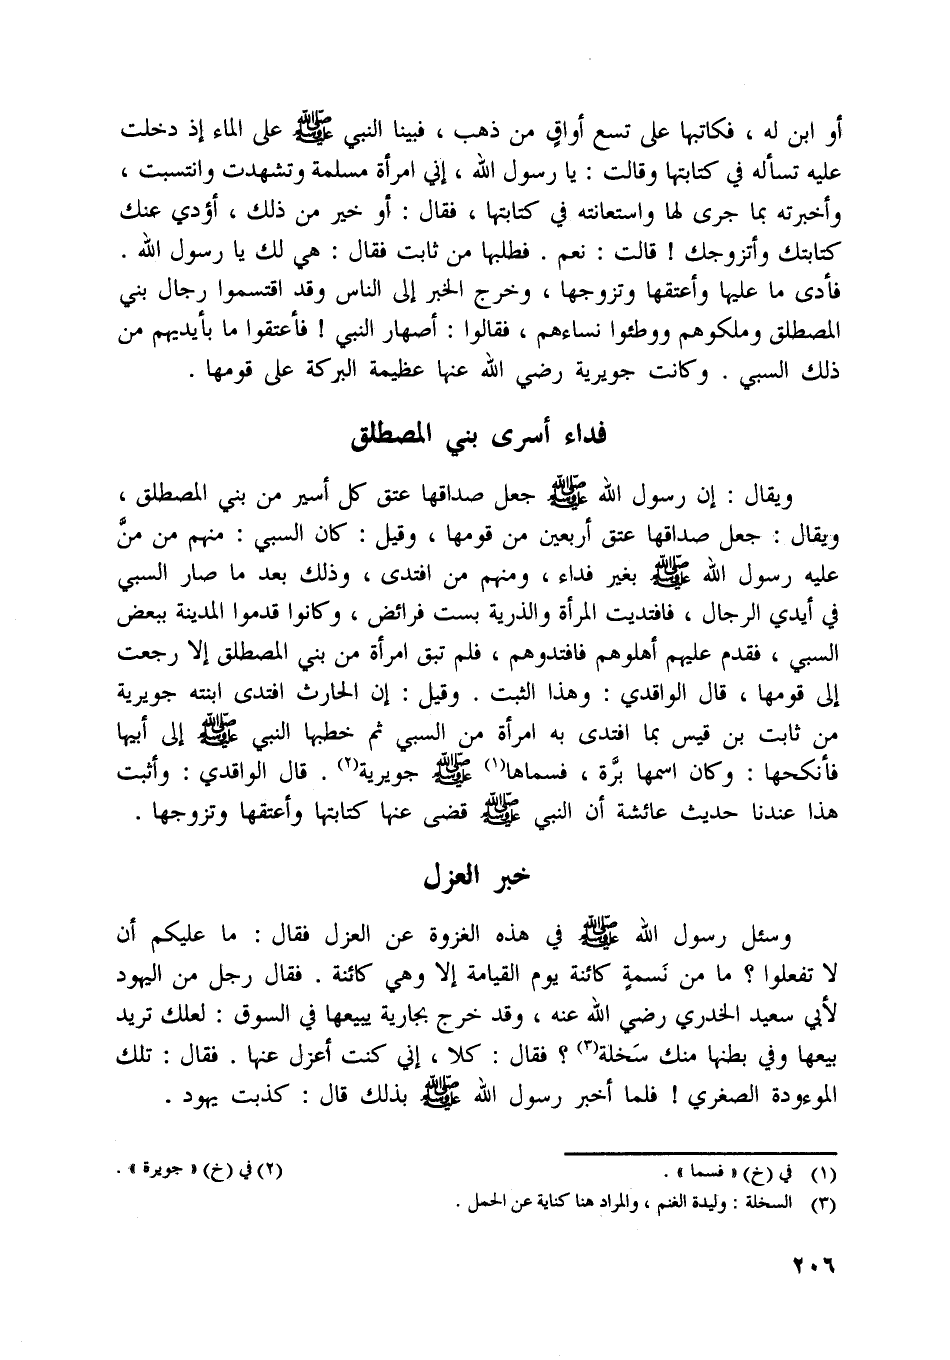 أو ابن له ، فكاتبها على تسع أواقٍ من ذهب ، فبينا النبي ﷺ على الماء إذ دخلت
عليه تسأله في كتابتها وقالت : يا رسول الله ، إني امرأة مسلمة وتشهدت وانتسبت ،
وأخبرته بما جرى لها واستعانته في كتابتها ، فقال : أو خير من ذلك ، أؤدي عنك
كتابتك وأتزوجك ! قالت : نعم . فطلبها من ثابت فقال : هي لك يا رسول الله .
فأدى ما عليها وأعتقها وتزوجها ، وخرج الخبر إلى الناس وقد اقتسموا رجال بني
المصطلق وملكوهم ووطئوا نساءهم ، فقالوا : أصهار النبي ! فأعتقوا ما بأيديهم من
ذلك السبي . وكانت جويرية رضي الله عنها عظيمة البركة على قومها .
فداء أسرى بني المصطلق
ويقال : إن رسول الله ﷺ جعل صداقها عتق كل أسير من بني المصطلق ،
ويقال : جعل صداقها عتق أربعين من قومها ، وقيل : كان السبي : منهم من منَّ
عليه رسول الله ﷺ بغير فداء ، ومنهم من افتدى ، وذلك بعد ما صار السبي
في أيدي الرجال ، فافتديت المرأة والذرية بست فرائض ، وكانوا قدموا المدينة ببعض
السبي ، فقدم عليهم أهلوهم فافتدوهم ، فلم تبق امرأة من بني المصطلق إلا رجعت
إلى قومها ، قال الواقدي : وهذا الثبت . وقيل : إن الحارث افتدى ابنته جويرية
من ثابت بن قيس بما افتدى به امرأة من السبي ثم خطبها النبي ﷺ إلى أبيها
فأنكحها : وكان اسمها برَّة ، فسماها(١) ﷺ جويرية(٢) . قال الواقدي : وأثبت
هذا عندنا حديث عائشة أن النبي ﷺ قضى عنها كتابتها وأعتقها وتزوجها .
خبر العزل
وسئل رسول الله ﷺ في هذه الغزوة عن العزل فقال : ما عليكم أن
لا تفعلوا ؟ ما من نَسمةٍ كائنة يوم القيامة إلا وهي كائنة . فقال رجل من اليهود
لأبي سعيد الخدري رضي الله عنه ، وقد خرج بجارية يبيعها في السوق : لعلك تريد
بيعها وفي بطنها منك سَخلة(٣) ؟ فقال : كلا ، إني كنت أعزل عنها . فقال : تلك
الموءودة الصغري ! فلما أخبر رسول الله ﷺ بذلك قال : كذبت يهود .
(١) في (خ) « فسما » .
(٢) في (خ) « جويرة » .
(٣) السخلة : وليدة الغنم ، والمراد هنا كناية عن الحمل .
٢٠٦